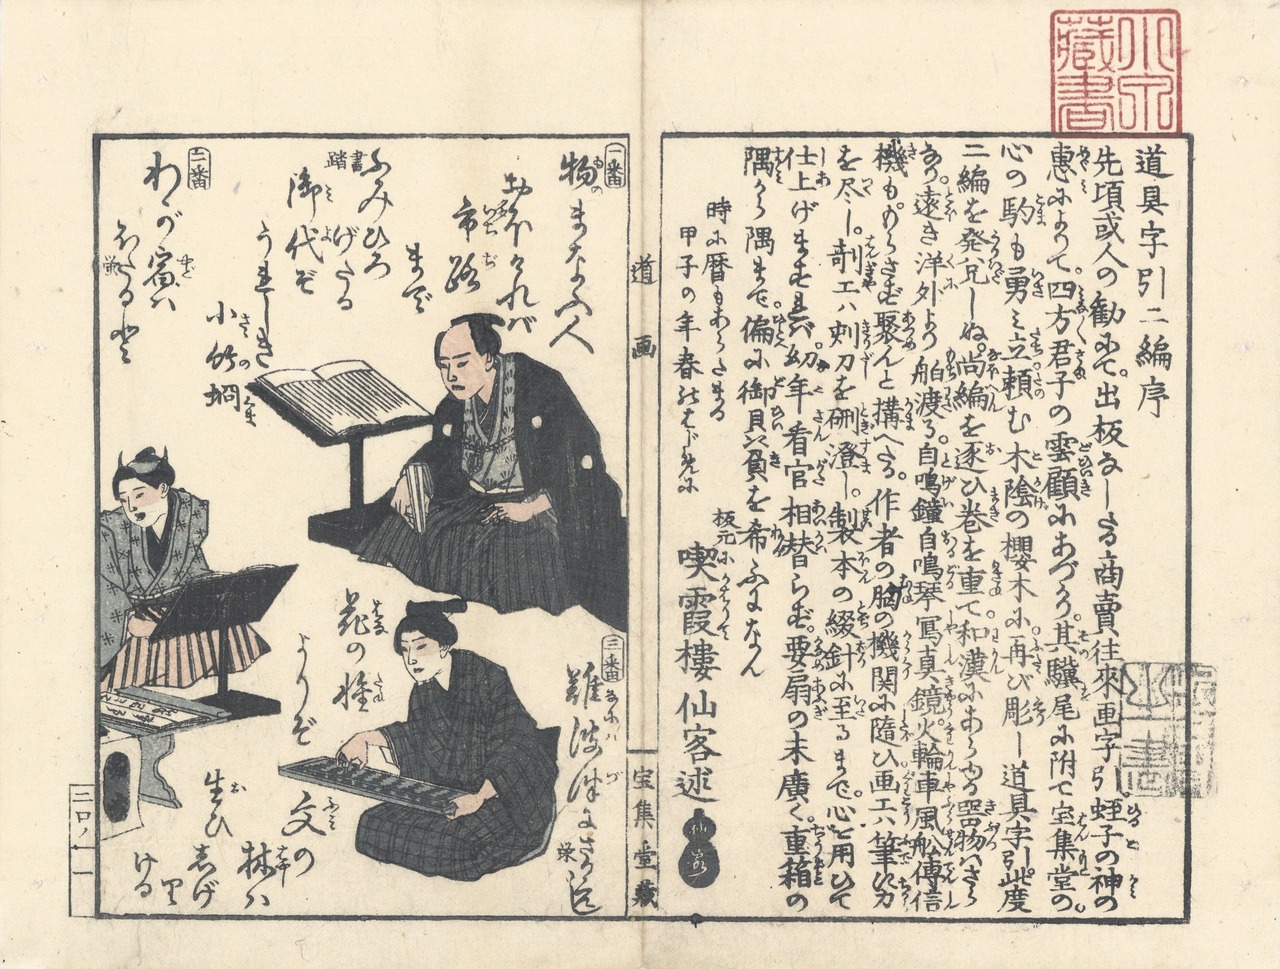 道具字引二編序
先頃或人の勧にて。出板なしたる商賣往來画字引。蛭子の神の
惠によりて。四方君子の雲顧にあづかり。其驥尾に附て宝集堂の。
心の駒も勇み立。頼む木陰の櫻木に再び彫し道具字引。此度
二編を発兌しぬ。尚編を逐ひ巻を重て。和漢にあらゆる器物はさら
なり。遠き洋外より舶渡る自鳴鐘自鳴琴。寫真鏡。火輪車風舩傳信
機ももらさず聚んと搆へたる。作者の胸の機関に隨ひ画工ハ筆に力
を尽し。剞工ハ刻刀を研澄し。製本の綴針に至るまで。心を用ひて
仕上げますれバ。幼年看官相替らず。要扇の末廣く。重箱の
隅から隅まで偏に御贔屓を希ふになん
時に暦もあらたまる
甲子の年春のはじめに
板元にかはりて
喫霞樓仙客述
道画
宝集堂蔵
一番
物まなぶ人
市路まで
書踏
ふみひろげたる
御代ぞ
うれしき
小竹蜩
二番
わが宿ハ
三番
難波津に
栄
花の種
よりぞ
文の
林ハ
生ひ
しげ
りける
小汀
藏書